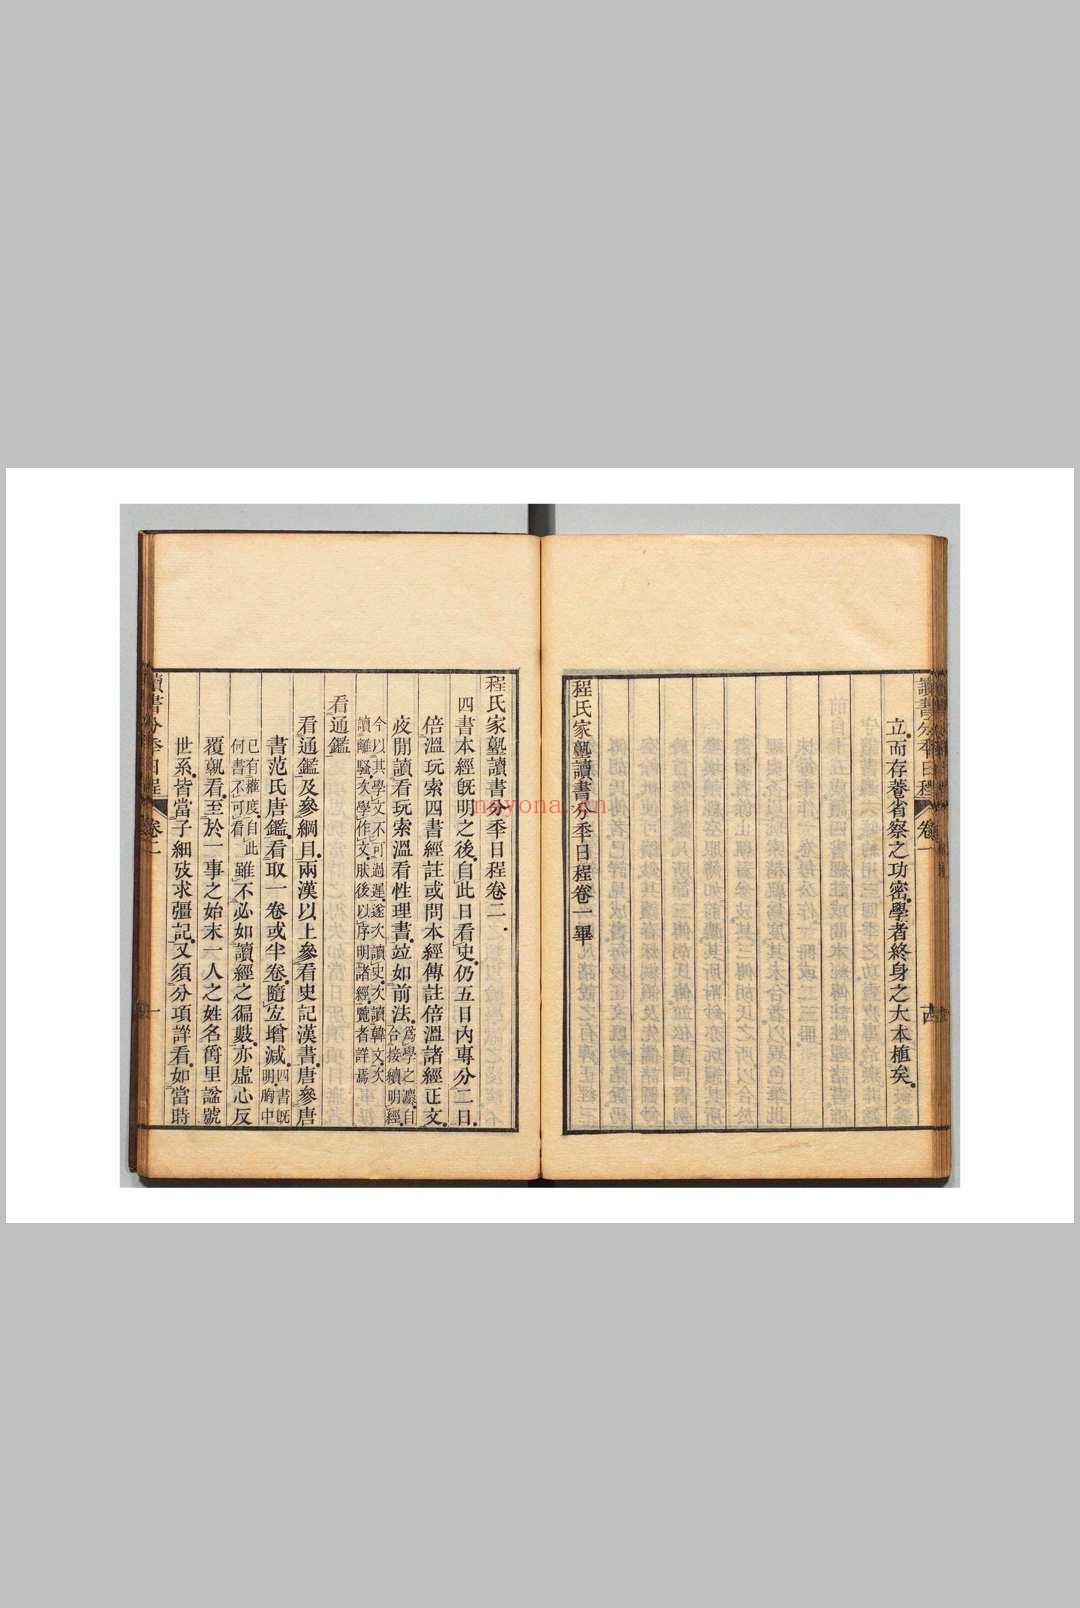 立而存養省察之功密學者終身之大本植矣
程氏家塾讀書分秊日程卷一畢
讀書分秊日程
卷一
程氏家塾讀書分秊日程卷二
四書本經旣明之後自此日看史仍五日內專分二日
倍溫玩索四書經註或問本經傳註倍溫諸經正文
夜閒讀看玩索溫看性理書竝如前法爲學之灋自
合接續明經
今以其學文不可過遲遂次讀史次讀韓文次
讀離騷次學作文肰後以序明諸經覽者詳焉
看通鑑
看通鑑及參綱目兩漢以上參看史記漢書唐參唐
書范氏唐鑑看取一卷或半卷隨宐增減四書旣
明胸中
已有權度自此
何書不可看雖不必如讀經之徧數亦虛心反
覆孰看至於一事之始末一人之姓名爵里諡號
世系皆當子細攷求彊記又須分項詳看如當時
讀書分秊日程
卷二
一
nayona.cn